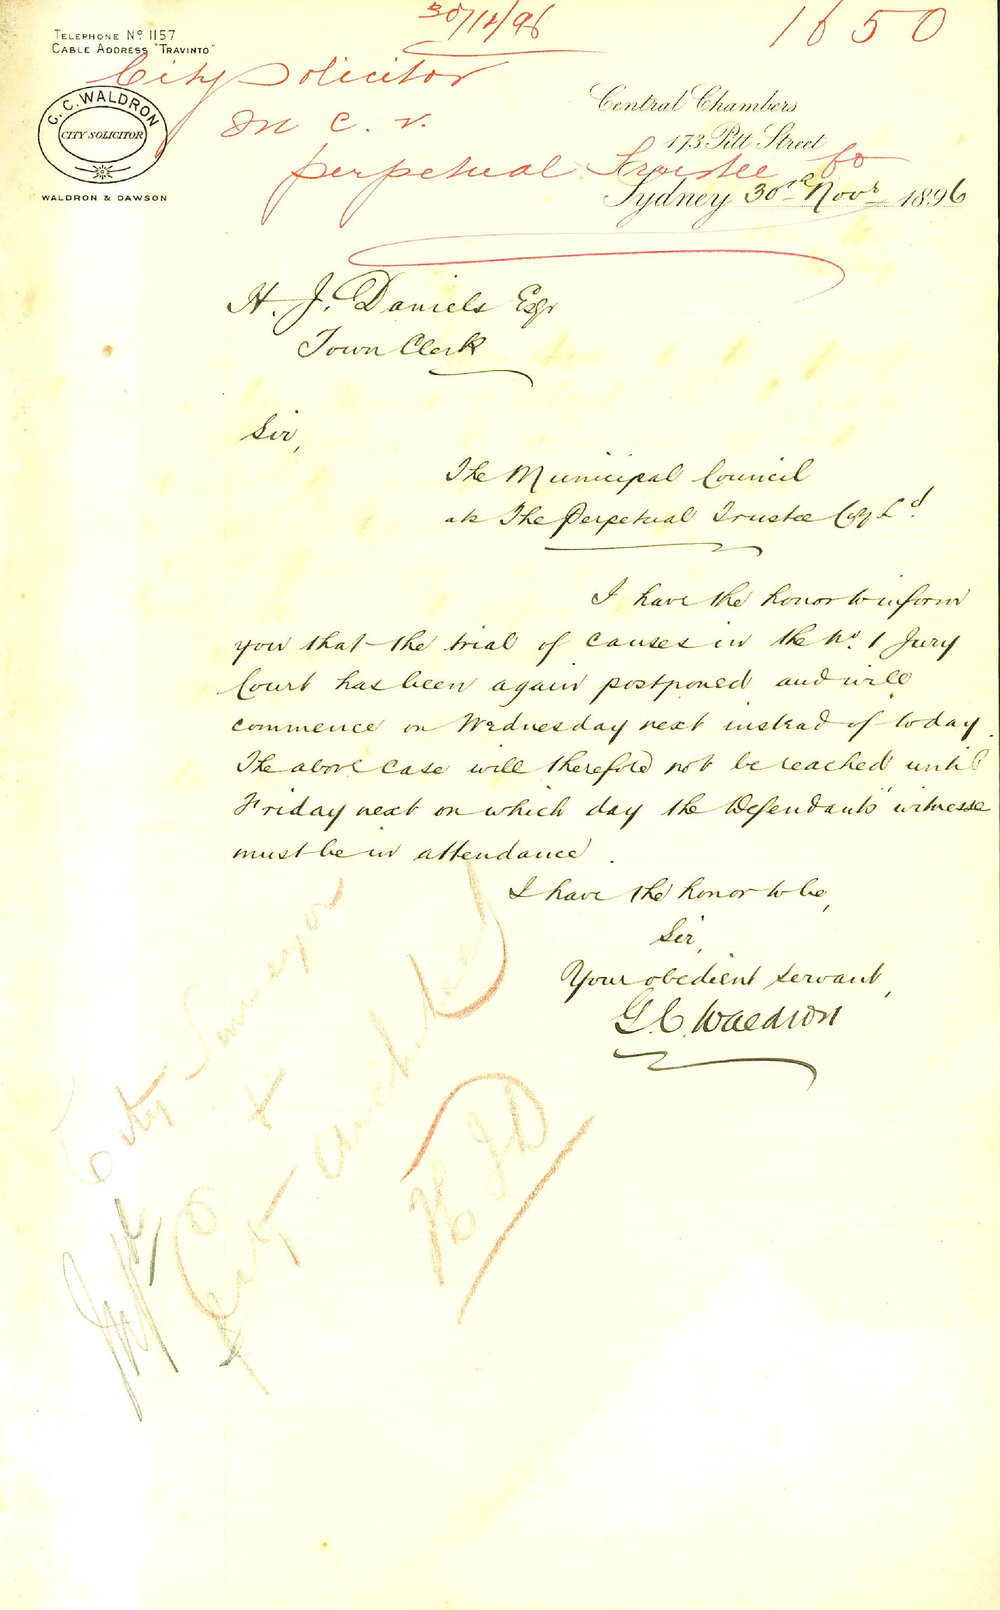 30/11/96
1650
TELEPHONE No 1157
CABLE ADDRESS "TRAVINTO"
City Solicitor
G. C. WALDRON
CITY SOLICITOR
WALDRON & DAWSON
M C. v.
perpetual Trustee Co
Central Chambers
173 Pitt Street
Sydney 30th Novr 1896
H. J. Daniels Esqr
Town Clerk
Sir,
The Municipal Council
ats The Perpetual Trustee Coy Ld.
I have the honor to inform
you that the trial of causes in the No. 1 Jury
Court has been again postponed and will
commence on Wednesday next instead of today.
The above case will therefore not be reached until
Friday next on which day the Defendants' witnesses
must be in attendance.
I have the honor to be,
Sir,
Your obedient servant,
G. C. Waldron
City Surveyor
&
City Architect
HJD